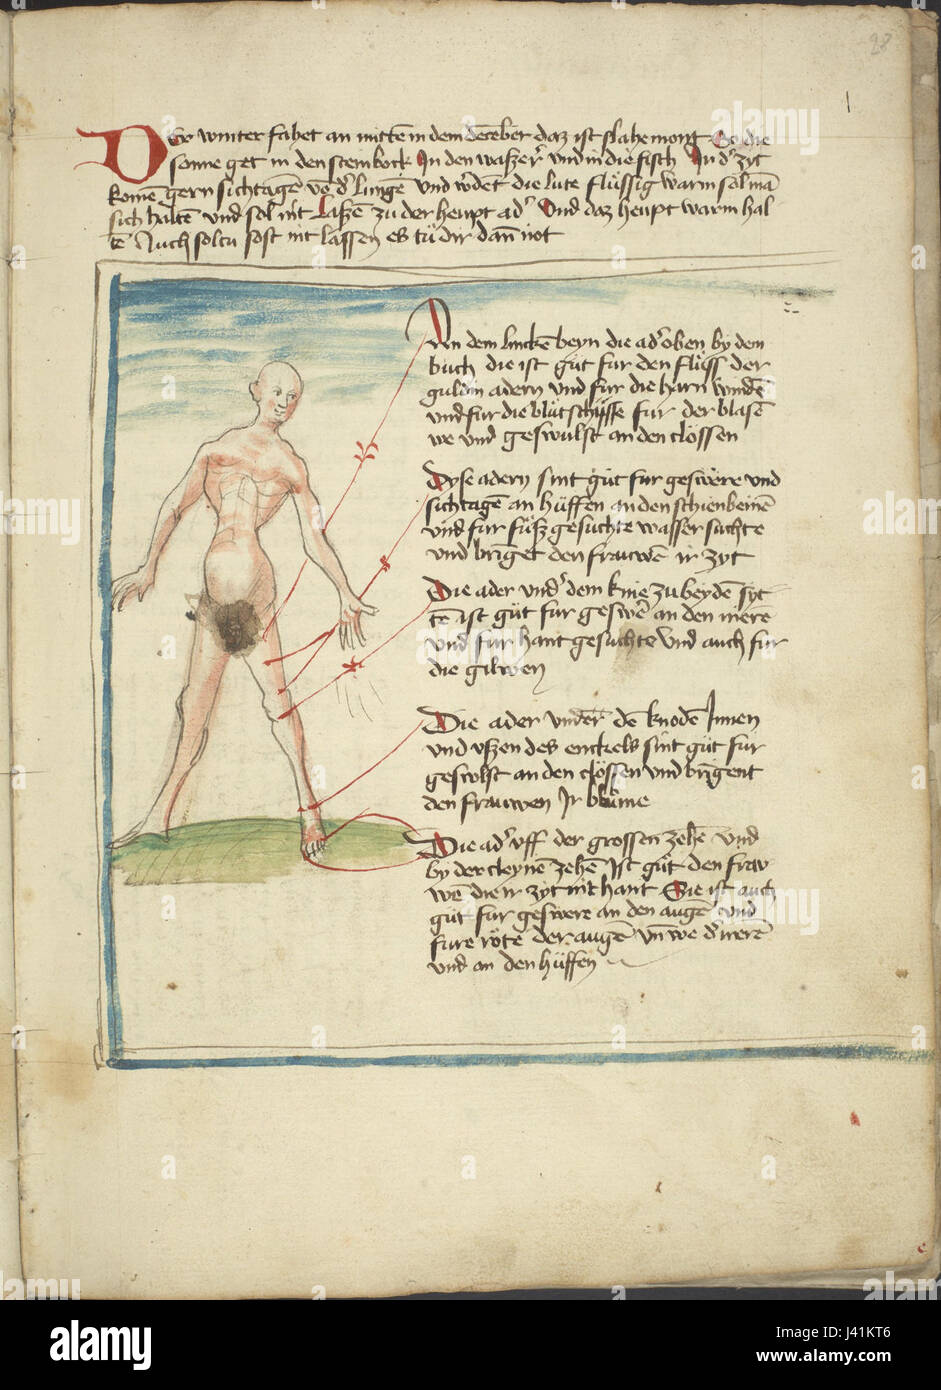 28
Der winter fahet an mitten in dem december daz ist slahtmong So die
sonne get in den steinbock In den waszer und in die fisch In der zyt
komē gern sichtagē vō der lungē und werdēt die lute flüssig warm sol mā
sich haltē und sol nit laszē zu der heupt ader Und daz heupt warm hal
tē Auch soltu sost nit lassen es tü dir dañ not
An dem linckē beyn die ader oben by dem
buch die ist güt fur den flüss der
guldin adern und fur die harn windē
und fur die blūt schüsse fur der blasē
we und geswulst an den clossen
Dyse adern sint güt fur geswere und
sichtagē an hüffen an den schienbeinē
und fur füsz gesuchte wassersuchte
und brīget den frauwē ir zyt
Die ader under dem knie zu beydē syt
tē ist güt fur geswer an den
und fur hant gesuchte und auch fur
die gilwen
Die ader under dē knodē Innen
und uszen des enckels sint güt fur
geswlst an den clössen und brīgent
den frauwen Ir blüme
Die ader uff der grossen zehē und
by der cleynē zehē Ist güt den frau
wē die ir zyt nit hant Sie ist auch
güt fur geswere an den augē und
fure röte der augē un we der
und an den hüffen
alamy
alamy stock photo
J41KT6
www.alamy.com